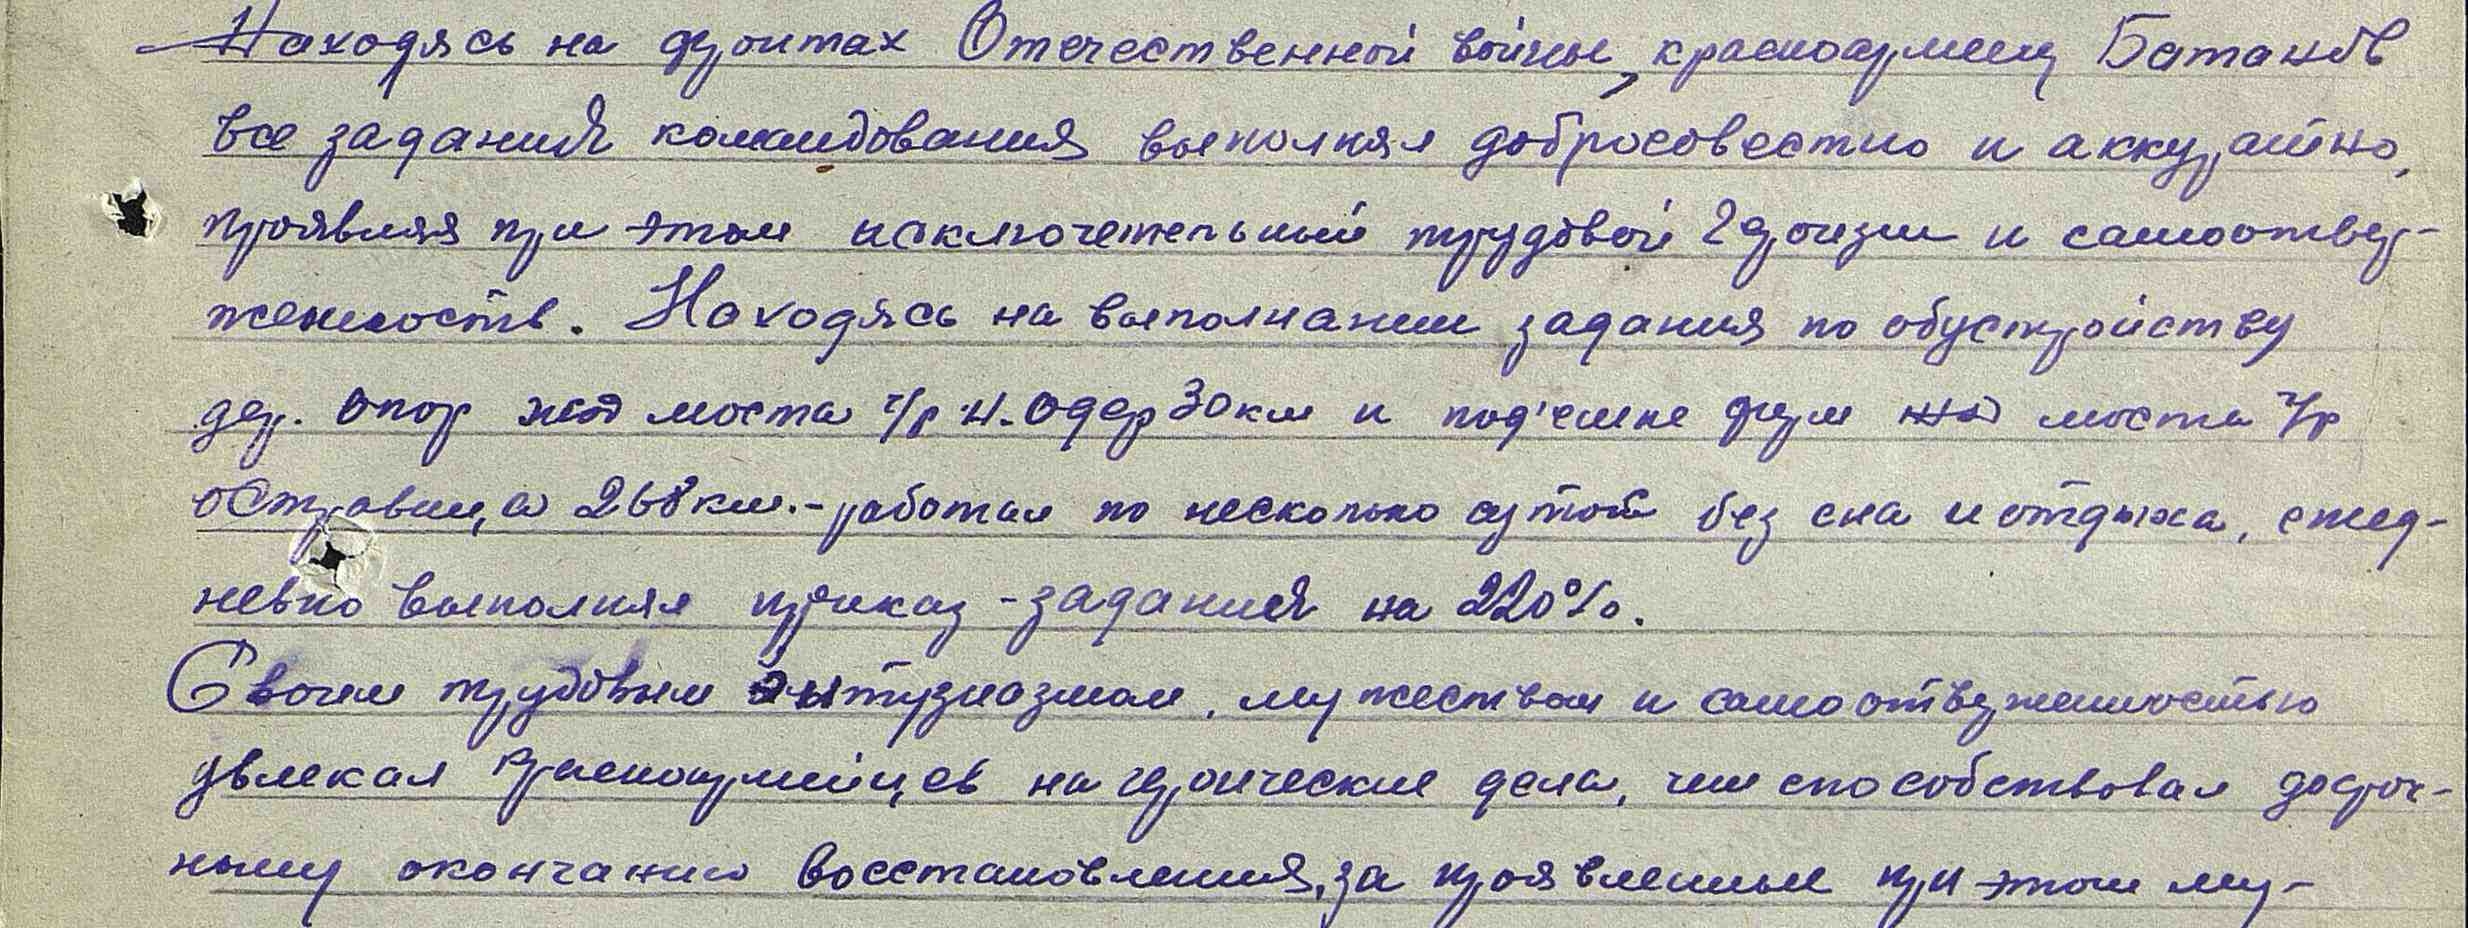 Находясь на фронтах Отечественной войны, красноармеец Батанов
все задания командования выполнял добросовестно и аккуратно,
проявляя при этом исключетельный трудовой героизм и самоотвер-
женность. Находясь на выполнании задания по обустройству
дер. опор жд моста ч/р Н. Одер 30 км и под'емке ферм жд моста ч/р
Остравица 268 км. - работал по несколько суток без сна и отдыха, ежед-
невно выполняя приказ - задания на 220%.
Своим трудовым энтузиазмом, мужеством и самоотверженностью
увлекал красноармейцев на героические дела, чем способствовал досроч-
ному окончанию восстановления, за проявленные при этом му-